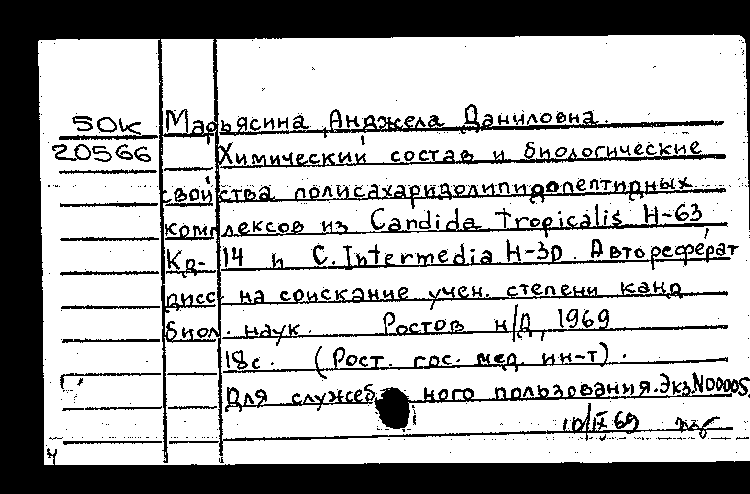 50к Марьясина, Анджела Даниловна.
20566 Химический состав и биологические
свойства полисахаридолипидопептидных
комплексов из Candida tropicalis Н-63
Кд-14 и C. Intermedia Н-3D. Автореферат
дисс. на соискание учен. степени канд
биол. наук. Ростов н/Д, 1969
18с. (Рост. гос. мед. ин-т).
Для служебного пользования. Экз.N00005
10/IX 69